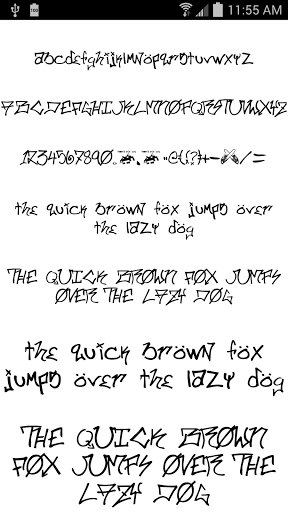 11:55 AM
abcdefghijklmnopqrstuvwxyz
ABCDEFGHIJKLMNOPQRSTUVWXYZ
1234567890. , "@(!?)+-*/=
the quick brown fox jumps over
the lazy dog
THE QUICK BROWN FOX JUMPS
OVER THE LAZY DOG
the quick brown fox
jumps over the lazy dog
THE QUICK BROWN
FOX JUMPS OVER THE
LAZY DOG